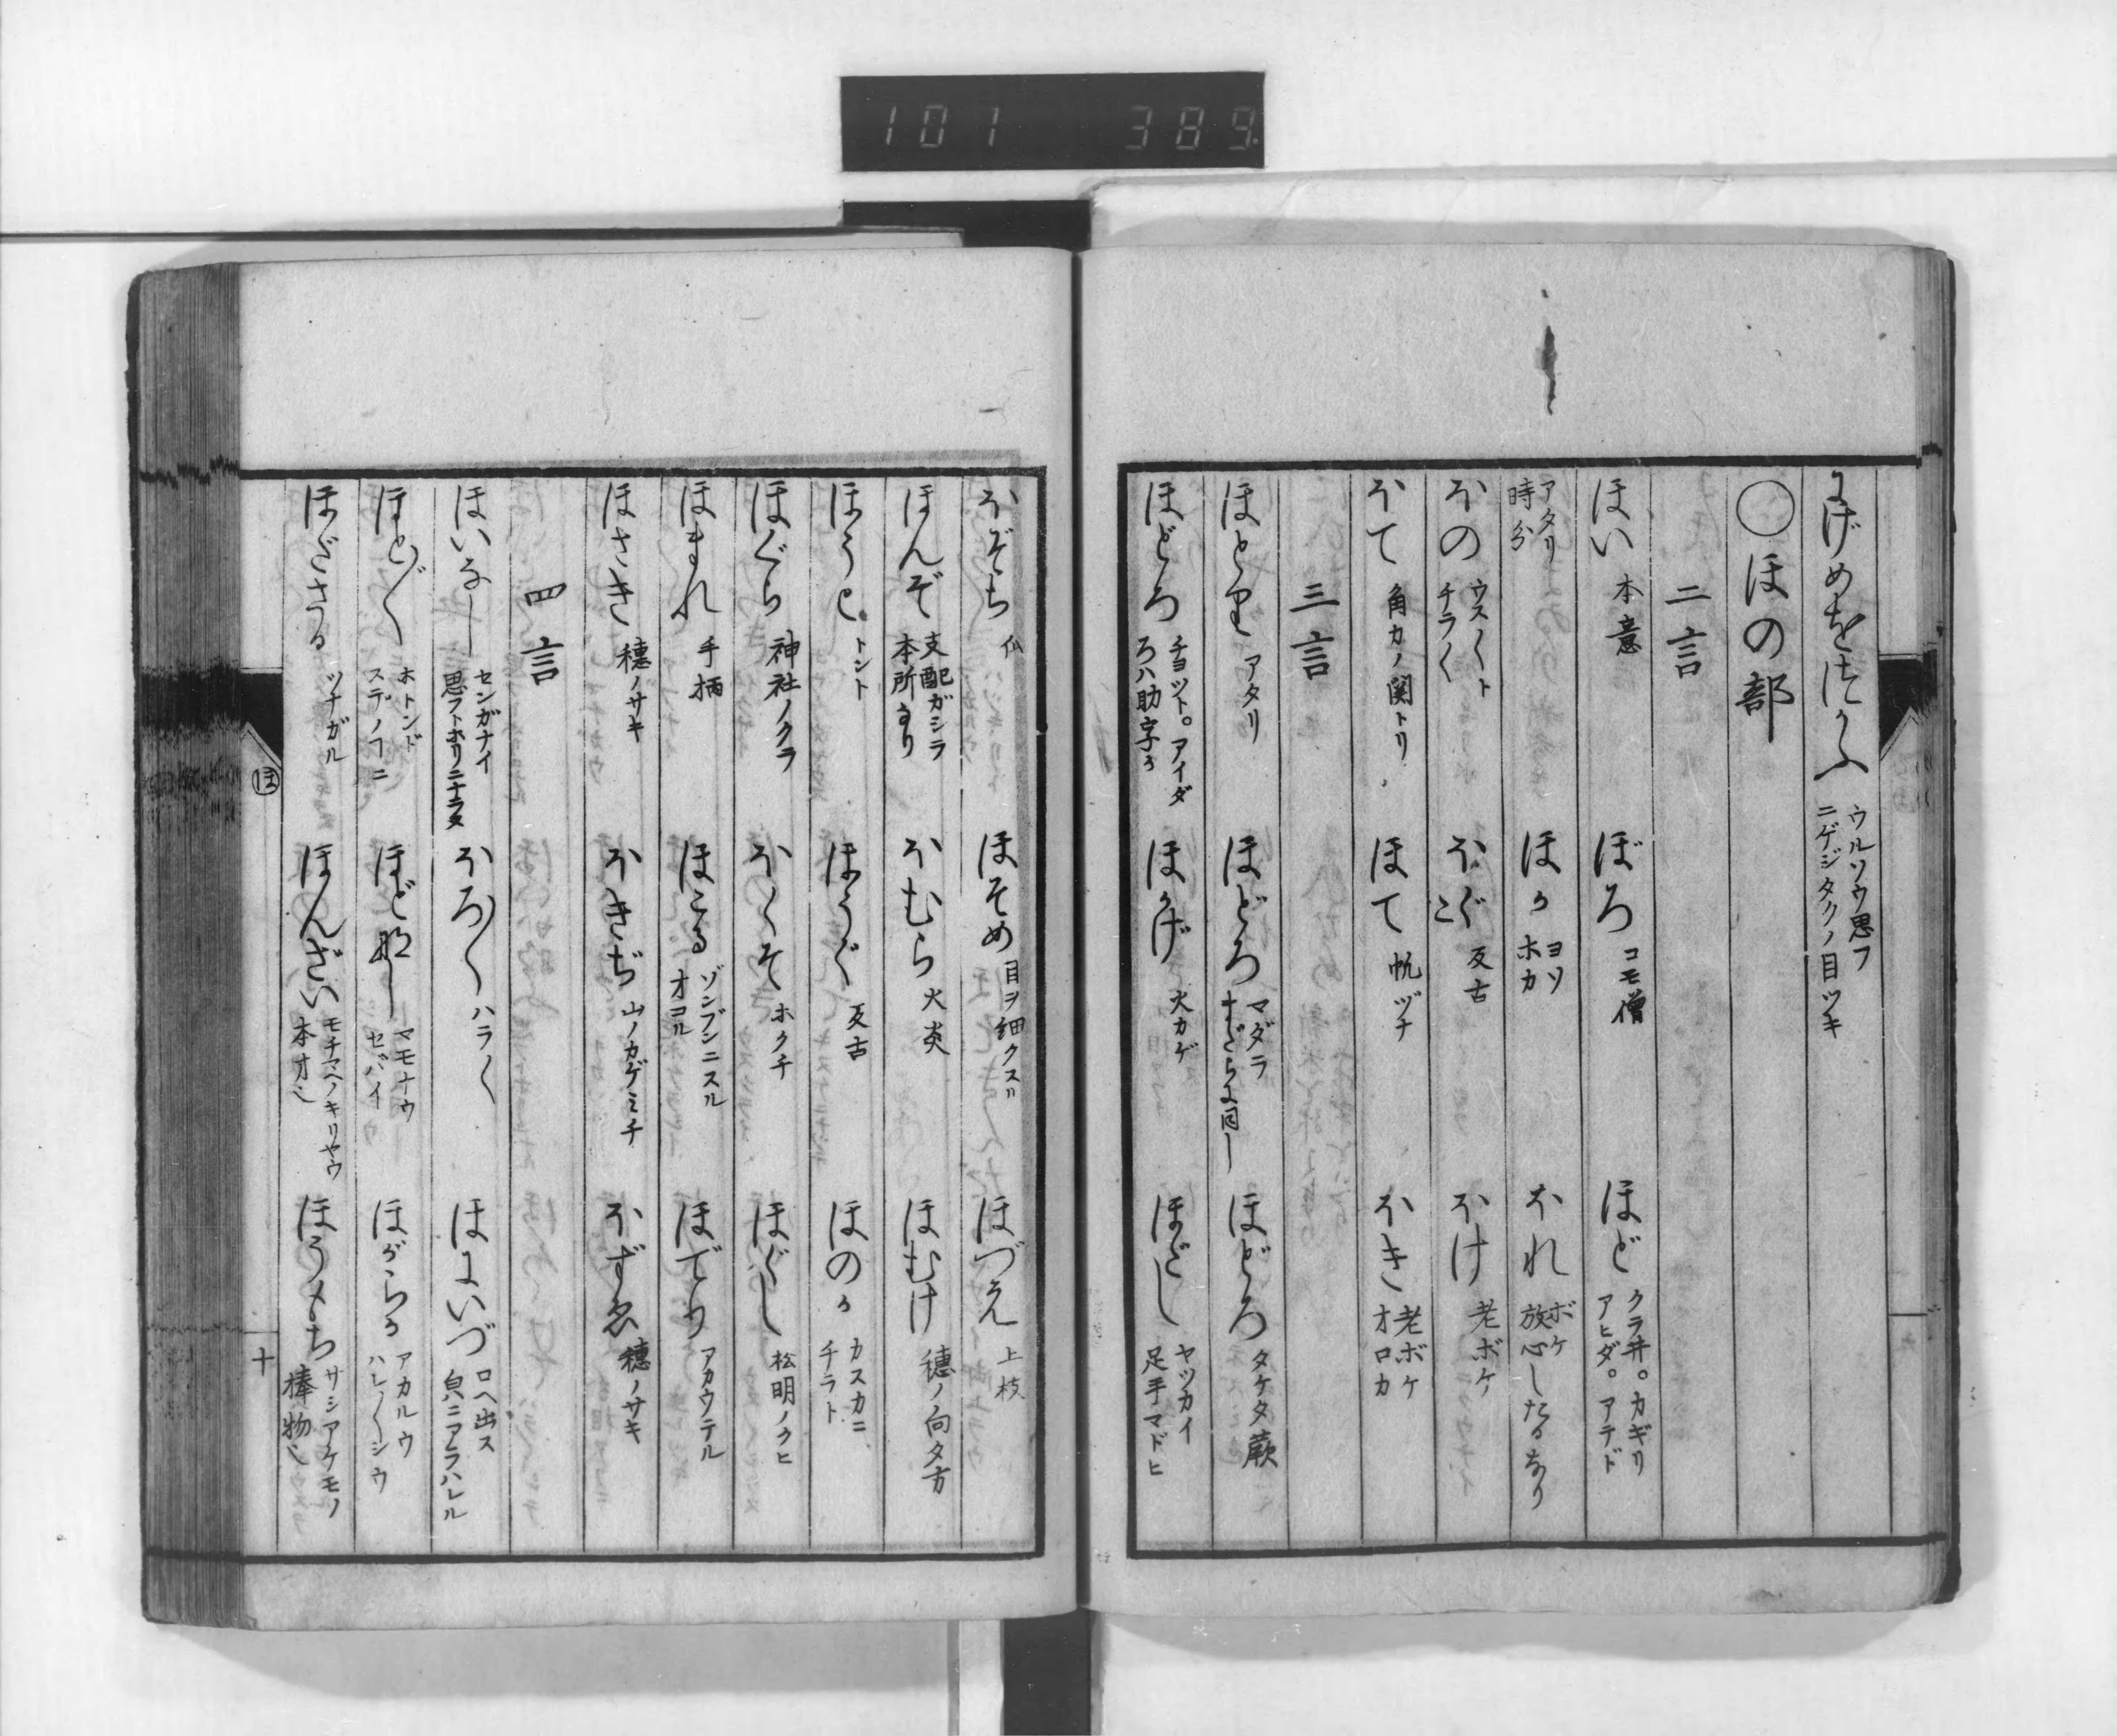 101 389
にげめをつかふ ウルソウ思フ ニゲジタクノ目ツキ
○ほの部
二言
ほい 本意 ぼろ コモ僧 ほど クラ井。カギリ アヒダ。アテド
アタリ 時分 ほか ヨソ ホカ ほれ ボケ 放心したるなり
ほの ウス〱ト チラ〱 ほぐ ほご 反古 ほけ 老ボケ
ほて 角力ノ関トリ ほて 帆ヅナ ほき 老ボケ オロカ
三言
ほとり アタリ ほどろ マダラ まだらに同し ほどろ タケタ蕨
ほどろ チヨツト。アイダ ろハ助字か ほかげ 火カゲ ほだし ヤツカイ 足手マドヒ
ほぞち 瓜 ほそめ 目ヲ細クスル ほづえ 上枝
ほんぞ 支配ガシラ 本所なり ほむら 火炎 ほむけ 穂ノ向タ方
ほうと トント ほうぐ 反古 ほのか カスカニ チラト
ほぐら 神社ノクラ ほくそ ホクチ ほぐし 松明ノクヒ
ほまれ 手柄 ほこる ゾンブンニスル オコル ほでり アカウテル
ほさき 穂ノサキ ほきぢ 山ノカゲミチ ほずゑ 穂ノサキ
四言
ほいなし センガナイ 思フトホリニナラヌ ほろ〱 ハラ〱 ほにいづ 口ヘ出ス 色ニアラハレル
ほど〱 ホトンド ステノ〱ニ ほどなし マモナウ セバイ ほがらか アカルウ ハレ〱シウ
ほださる ツナガル ほんざい モチマヘノキリヤウ 本才也 ほうもち サシアケモノ 捧物也
ほ
十